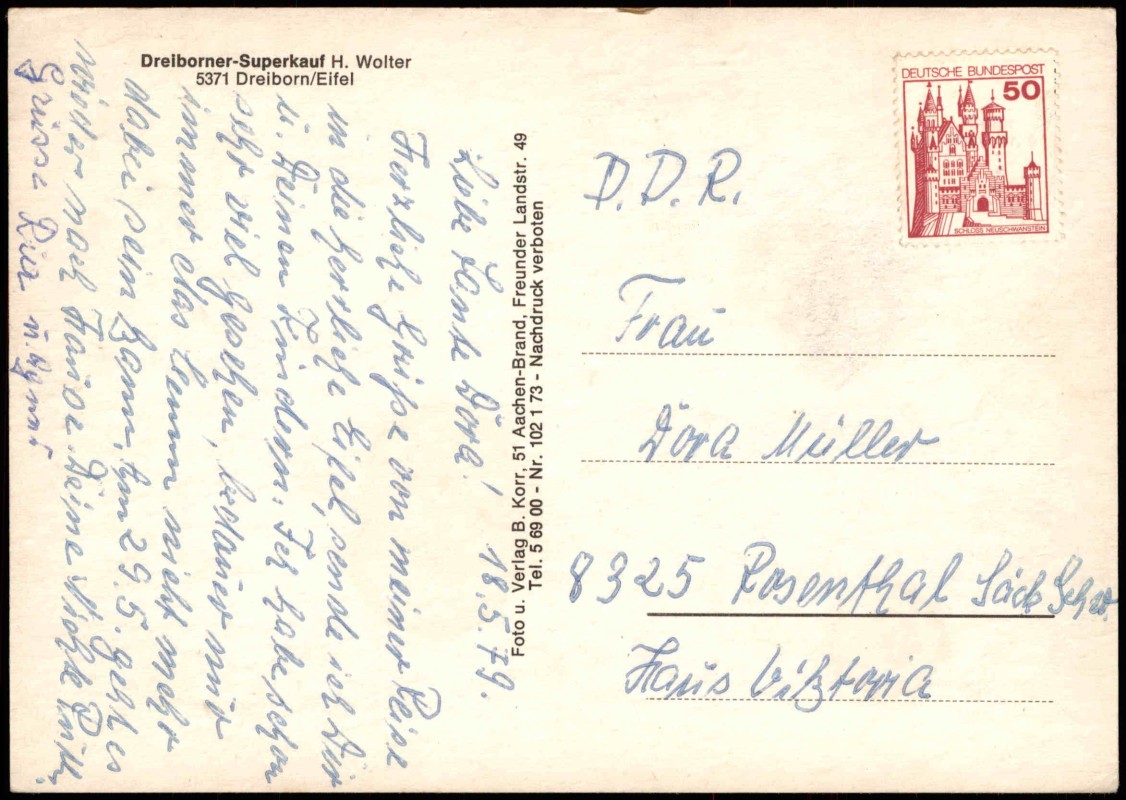 Dreiborner-Superkauf H. Wolter
5371 Dreiborn/Eifel
Liebe Tante Dora! 18.5.79.
Herzliche Grüße von meiner Reise
in die herrliche Eifel sende ich Dir
u. Deinen Kindern. Ich habe schon
sehr viel gesehen, bedauer nur
immer das Benni nicht mehr
dabei sein kann, Am 29.5. geht es
wieder nach Hause. Deine Nichte Ruth
Grüsse Ria u.
Foto u. Verlag B. Korr, 51 Aachen-Brand, Freunder Landstr. 49
Tel. 5 69 00 - Nr. 102 1 73 - Nachdruck verboten
DEUTSCHE BUNDESPOST
50
SCHLOSS NEUSCHWANSTEIN
D.D.R.
Frau
Dora Müller
8325 Rosenthal Säch Schw
Haus Viktoria